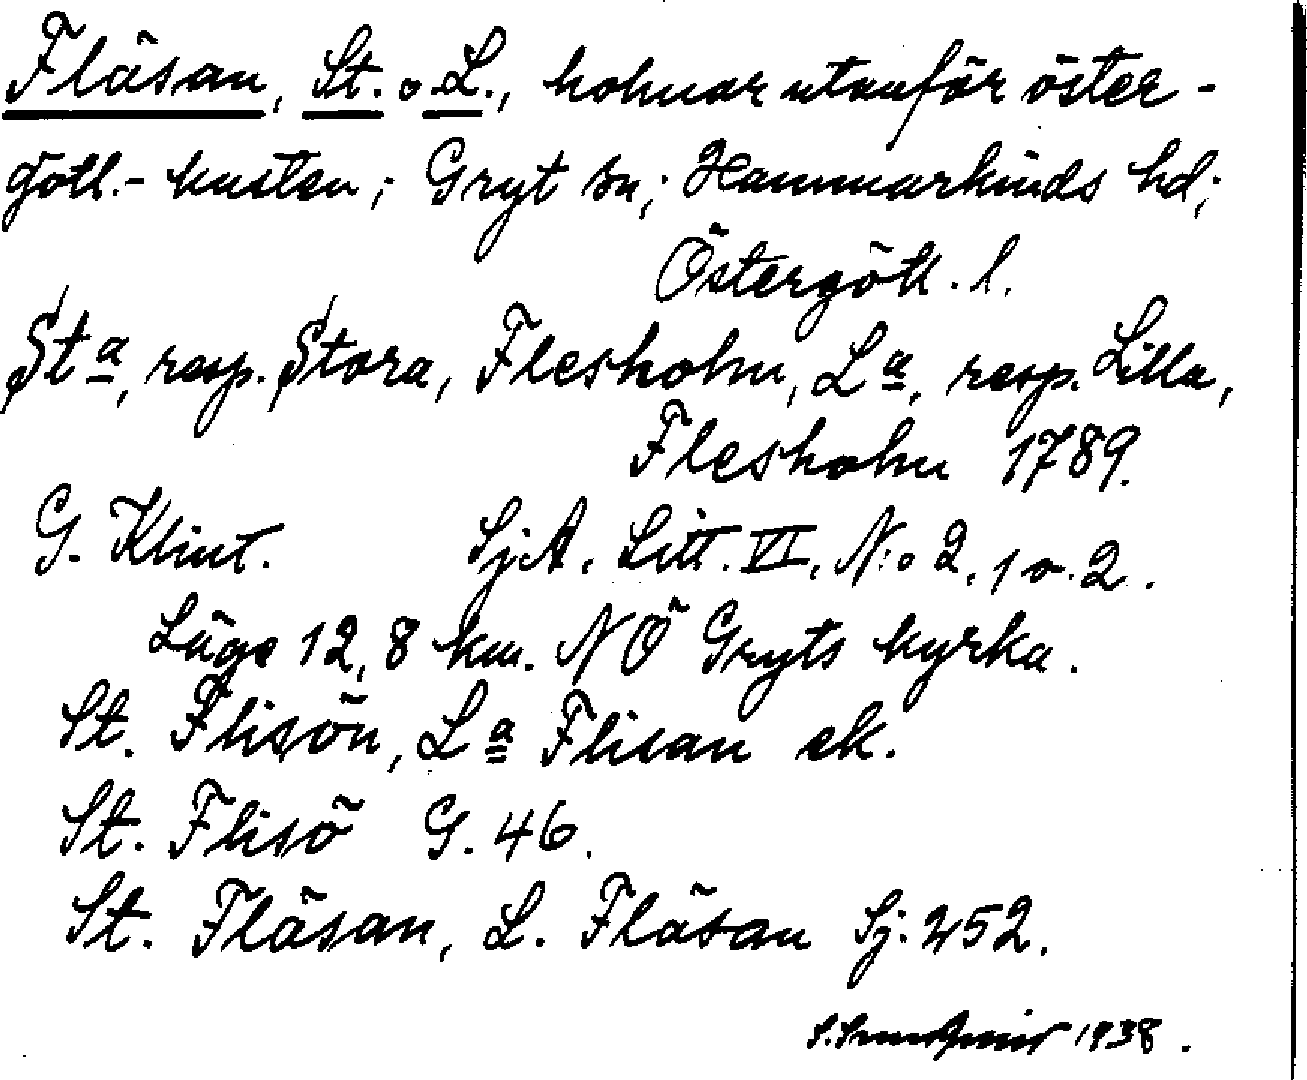 Fläsan, St. o L., holmar utanför öster-
götl.-kusten; Gryt sn; Hammarkinds hd;
Östergötl. l.
St<u>a</u>, resp. Stora, Flesholm, L<u>a</u>, resp. Lilla,
Flesholm 1789.
G. Klint. SjA. Litt. VI, N:o 2, 1 o. 2.
Läge 12,8 km. NÖ Gryts kyrka.
St. Flisön, La Flisan ek.
St. Flisö G. 46.
St. Fläsan, L. Fläsan Sj. 252.
1938.